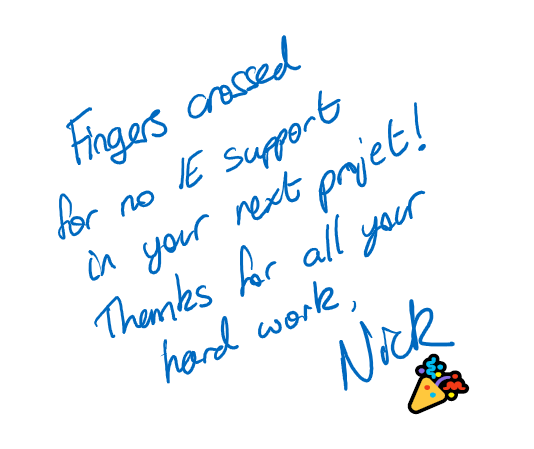 Fingers crossed
for no IE support
in your next projet!
Thanks for all your
hard work,
Nick